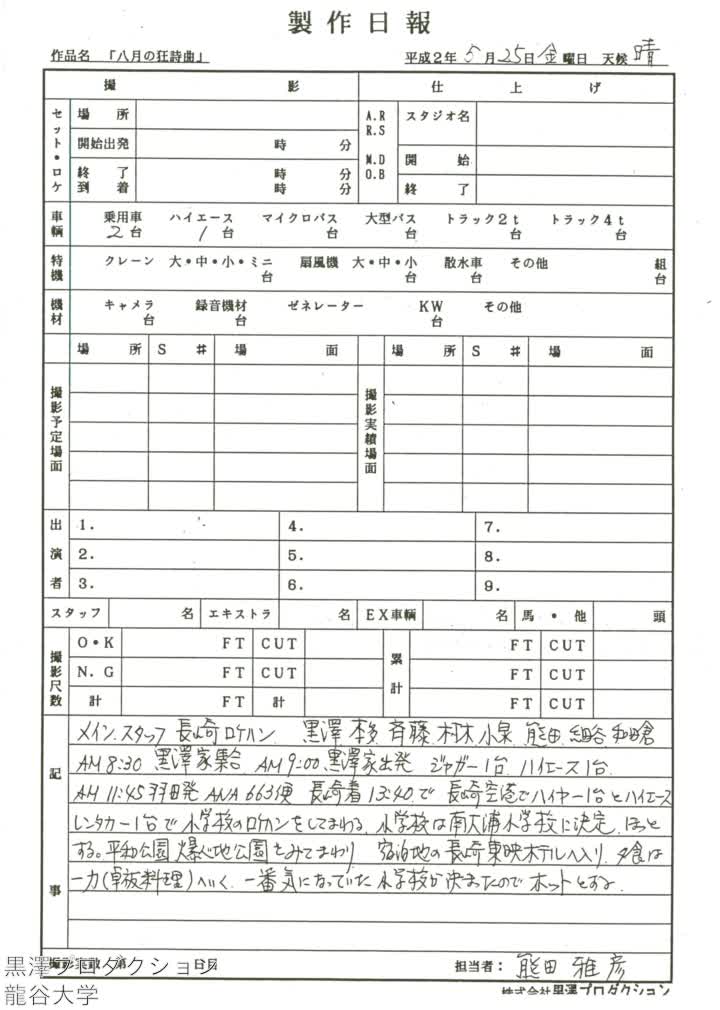 製作日報
作品名 「八月の狂詩曲」 平成2年5月25日金曜日 天候 晴
撮 影 仕 上 げ
セット・ロケ 場 所 A.R R.S M.D O.B スタジオ名
開始出発 時 分 開 始
終 了 時 分 終 了
到 着 時 分
車輌 乗用車 ハイエース マイクロバス 大型バス トラック2t トラック4t
2台 1台 台 台 台 台
特機 クレーン 大・中・小・ミニ 扇風機 大・中・小 散水車 その他 組
台 台 台 台
機材 キャメラ 録音機材 ゼネレーター KW その他
台 台 台
場 所 S # 場 面 場 所 S # 場 面
撮影予定場面 撮影実績場面
出演者 1. 4. 7.
2. 5. 8.
3. 6. 9.
スタッフ 名 エキストラ 名 EX車輌 名 馬・他 頭
撮影尺数 O・K FT CUT 累計 FT CUT
N.G FT CUT FT CUT
計 FT 計 FT CUT
記事
メイン.スタッフ 長崎ロケハン 黒澤 本多 斉藤 村木 小泉 熊田 細谷 和田倉
AM 8:30 黒澤家集合 AM 9:00 黒澤家出発 ジャガー1台 ハイエース1台
AM 11:45 羽田発 ANA 663便 長崎着 13:40 で 長崎空港でハイヤー1台とハイエース
レンタカー1台で 小学校のロケハンをしてまわる. 小学校は南大浦小学校に決定. ほっと
する。平和公園 爆心地公園をみてまわり 宿泊地の長崎東映ホテルへ入り. 夕食は
一力(卓袱料理)へいく. 一番気になっていた 小学校が決まったので ホットとする.
撮影実数 第 日目 担当者: 熊田 雅彦
株式会社黒澤プロダクション
黒澤プロダクション
龍谷大学